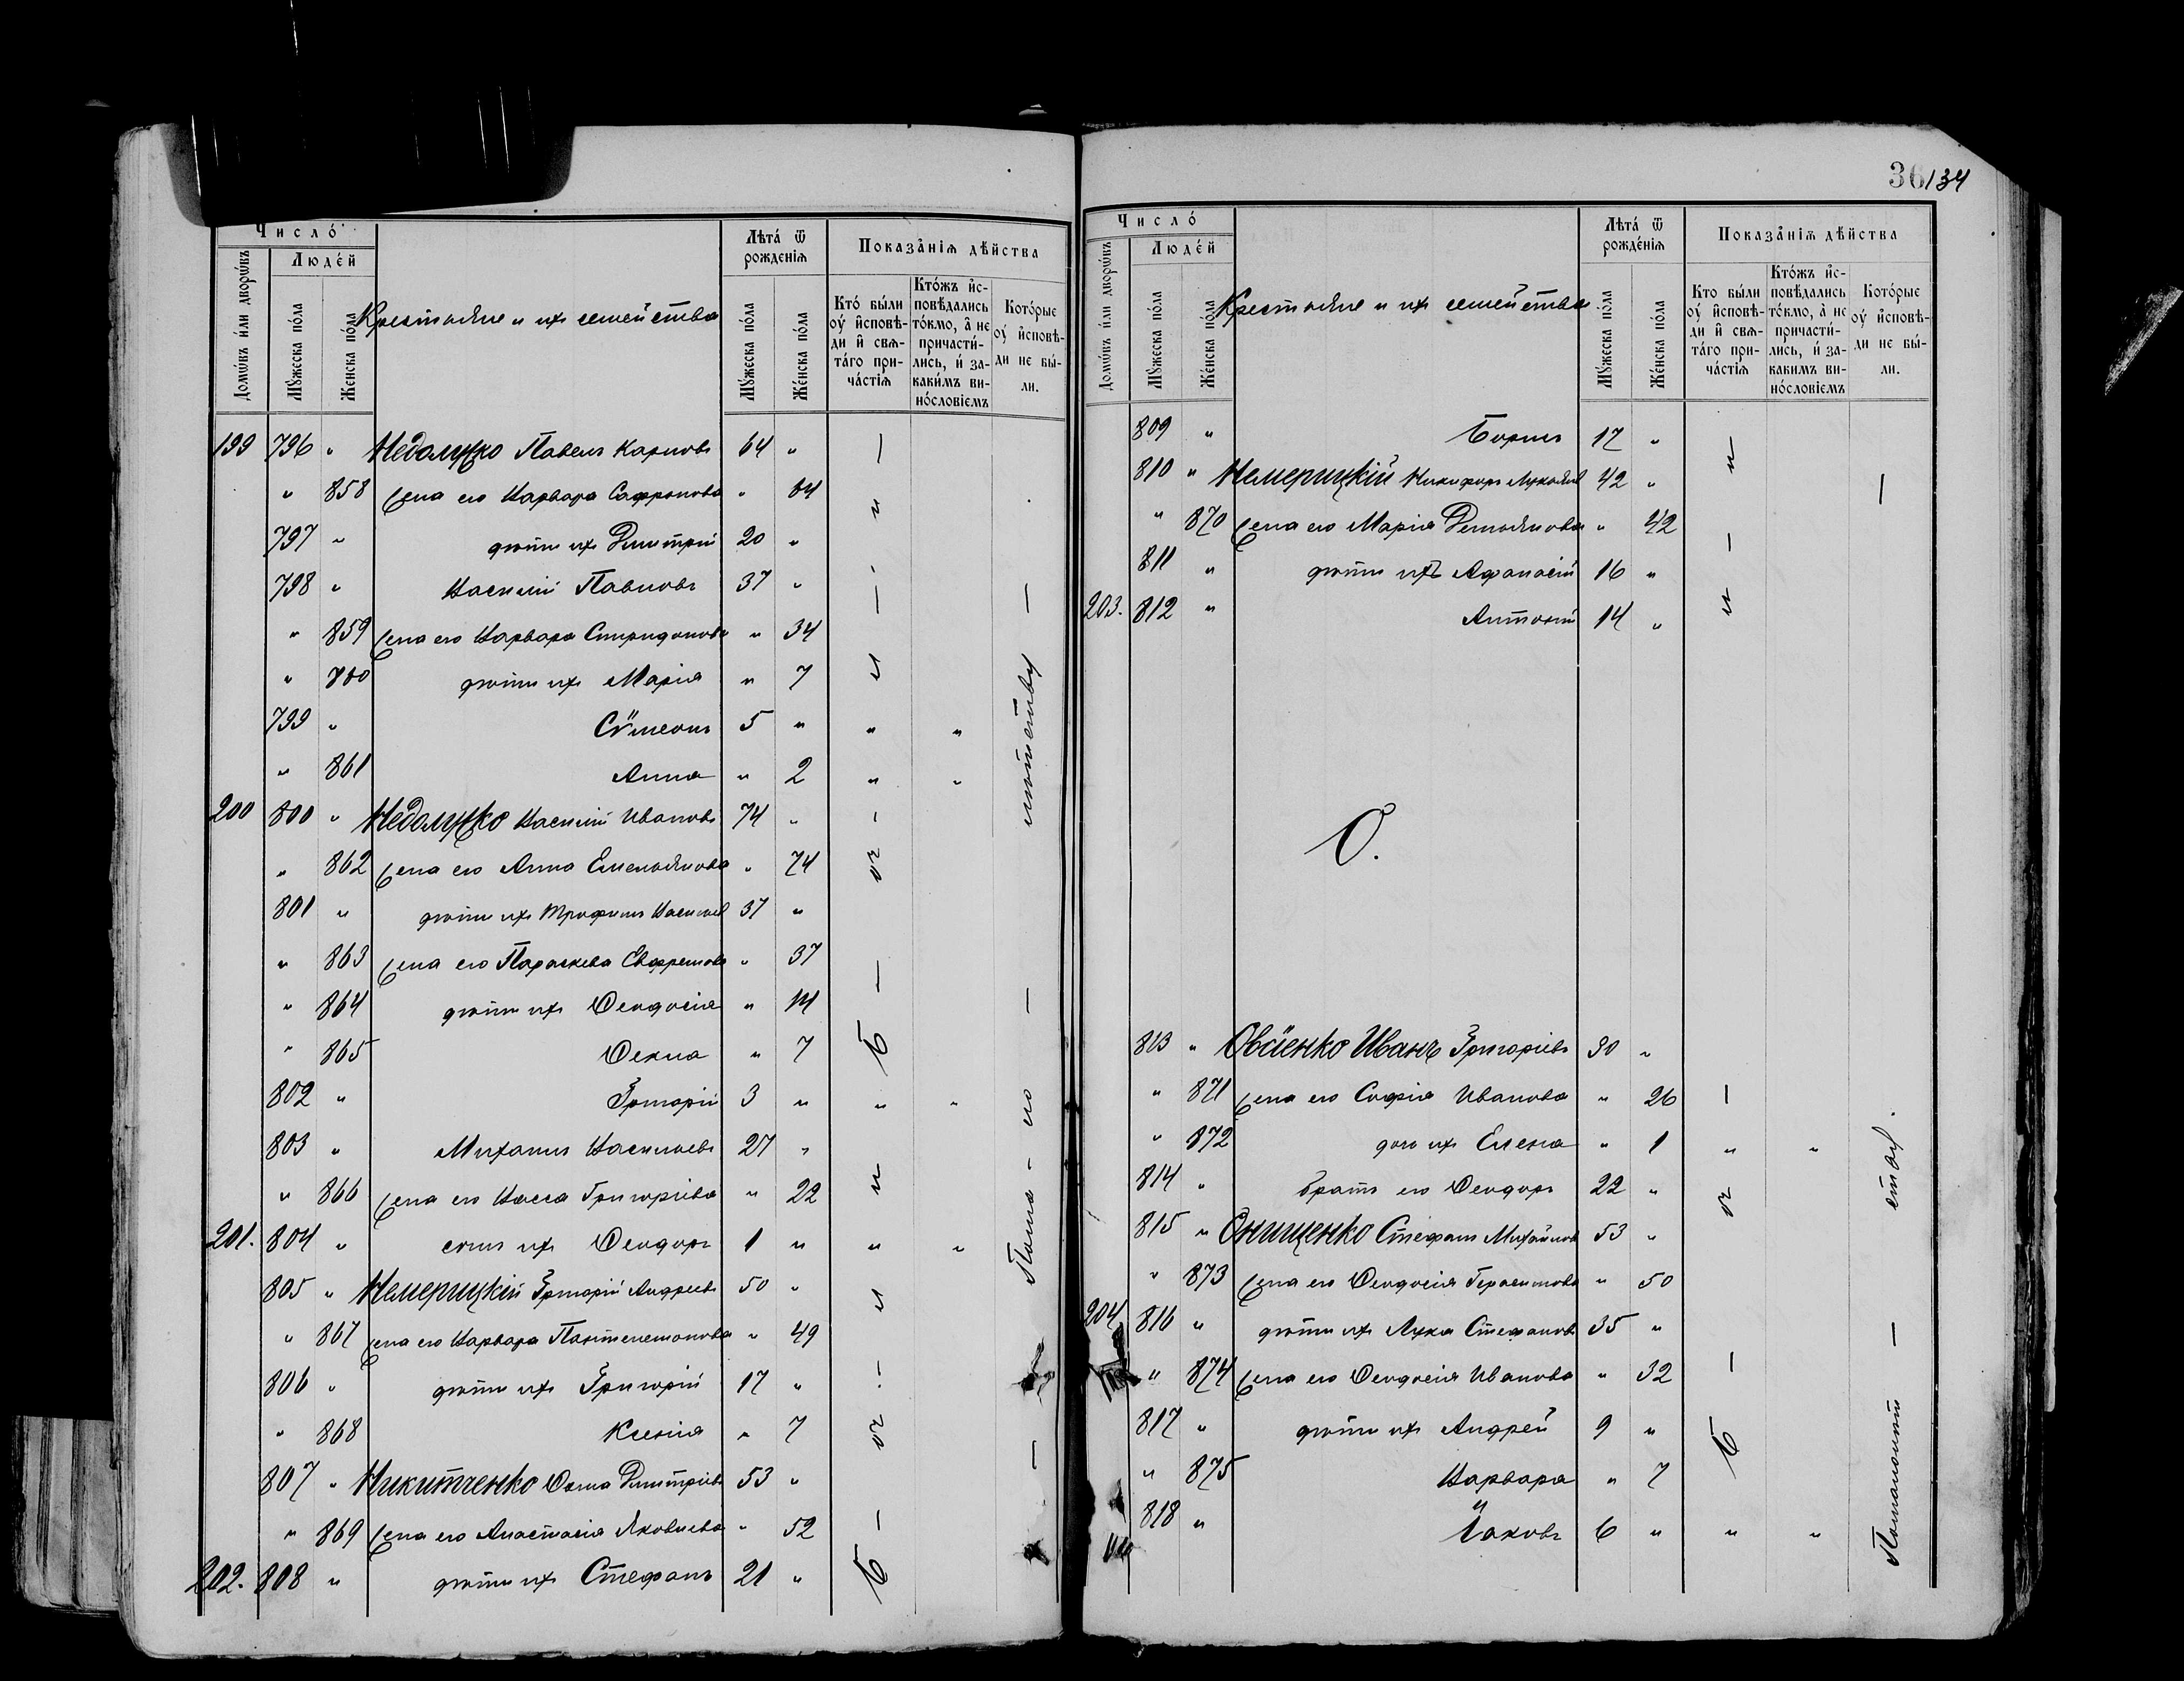 Число́
Домѡ́въ и҆лѝ дворѡ́въ
Люде́й
Мꙋ́жеска по́ла
Же́нска по́ла
Крестьяне и ихъ семейства
Лѣта̀ ѿ рожде́нїѧ
Мꙋ́жеска по́ла
Же́нска по́ла
Показа̑нїѧ дѣ́йства
Кто̀ бы́ли оу҆ и҆сповѣ-
ди и҆ свѧ-
та́го при-
ча́стїѧ
Кто́жъ и҆с-
повѣ́дались
то́кмо, а҆ не
причасти́-
лись, и҆ за-
каки́мъ ви-
носло́вїемъ
Кото́рые
оу҆ и҆сповѣ-
ди не бы́-
ли.
199 796 " Недолужко Павелъ Карповъ 64 "
" 858 жена его Варвара Сафронова " 64
797 " дѣти ихъ Дмитрій 20 "
798 " Василій Павловъ 37 "
" 859 жена его Варвара Спиридонова " 34
" 860 дѣти ихъ Марія " 7
799 " Сѵмеонъ 5 " " "
" 861 Анна " 2 " "
200 800 " Недолужко Василій Ивановъ 74 "
" 862 жена его Анна Емельянова " 74
801 " дѣти ихъ Трофимъ Васильев 37 "
" 863 жена его Параскева Евфремова " 37
" 864 дѣти ихъ Ѳеодосія " 14
" 865 Ѳекла " 7
802 " Григорій 3 " " "
803 " Михаилъ Васильевъ 27 "
" 866 жена его Васса Григоріева " 22
201. 804 " сынъ ихъ Ѳеодоръ 1 " " "
805 " Немерицкій Григорій Андреевъ 50 "
" 867 жена его Варвара Пантелемонова " 49
806 " дѣти ихъ Григорій 17 "
" 868 Ксенія " 7
807 " Никитченко Ѳома Дмитріевъ 53 "
" 869 жена его Анастасія Яковлева " 52
202. 808 " дѣти ихъ Стефанъ 21 "
— Были — Были — Были — Б
— По мало-лѣтству —
36/34
Число́
Домѡ́въ и҆лѝ дворѡ́въ
Люде́й
Мꙋ́жеска по́ла
Же́нска по́ла
Крестьяне и ихъ семейства
Лѣта̀ ѿ рожде́нїѧ
Мꙋ́жеска по́ла
Же́нска по́ла
Показа̑нїѧ дѣ́йства
Кто бы́ли
оу҆ и҆сповѣ-
ди и҆ свѧ-
та́го при-
ча́стїѧ
Кто́жъ и҆с-
повѣ́дались
то́кмо, а҆ не
причасти́-
лись, и҆ за-
каки́мъ ви-
носло́вїемъ
Кото́рые
оу҆ и҆сповѣ-
ди не бы́-
ли.
809 " Борисъ 17 "
810 " Немерицкій Никифоръ Лукьянов 42 "
" 870 жена его Марія Демьянова " 42
811 " дѣти ихъ Афанасій 16 "
203. 812 " Антоній 14 "
О.
813 " Овсіенко Иванъ Григоріевъ 30 "
" 871 жена его Софія Иванова " 26
" 872 дочь ихъ Елена " 1 " "
814 " братъ его Ѳеодоръ 22 "
815 " Онищенко Стефанъ Михайловъ 53 "
" 873 жена его Ѳеодосія Герасимова " 50
204 816 " дѣти ихъ Лука Стефановъ 35 "
" 874 жена его Ѳеодосія Иванова " 32
817 " дѣти ихъ Андрей 9 "
" 875 Варвара " 7
818 " Іаковъ 6 " " "
По малолѣт — ству.